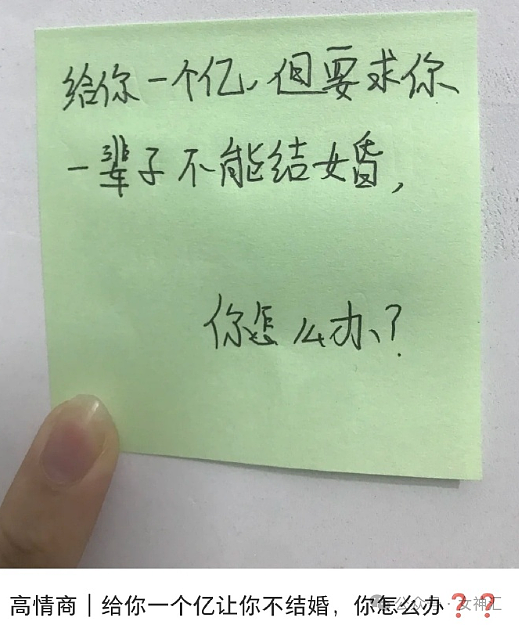 给你一个亿，但要求你
一辈子不能结婚，
你怎么办？
高情商｜给你一个亿让你不结婚，你怎么办❓❓
公众号·女神汇